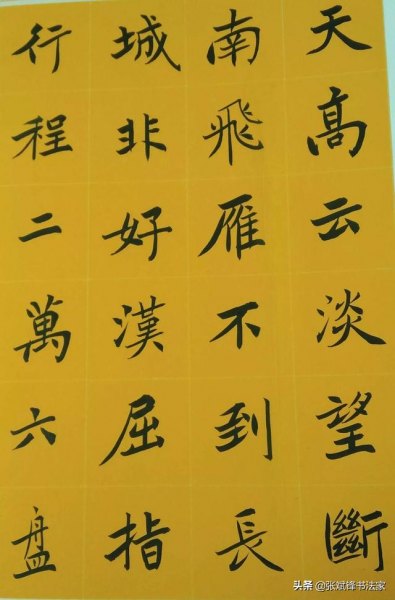 天高云淡望斷
南飛雁不到長
城非好漢屈指
行程二萬六盘
头条 @张斌锋书法家